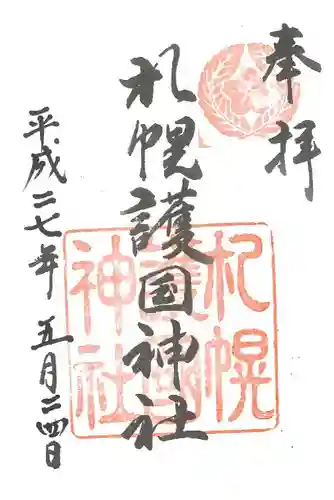 奉拝
札幌護国神社
平成二七年五月二四日
札幌
護国
神社